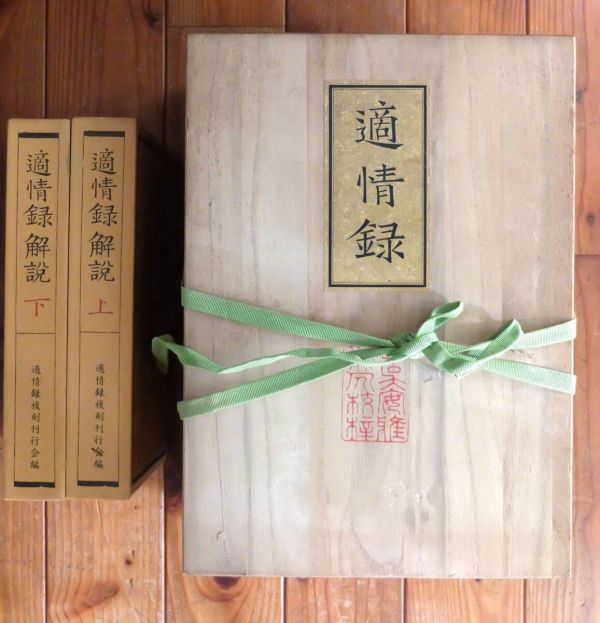 適情録
適情録解説
上
適情録複刻刊行会編
適情録解説
下
適情録複刻刊行会編